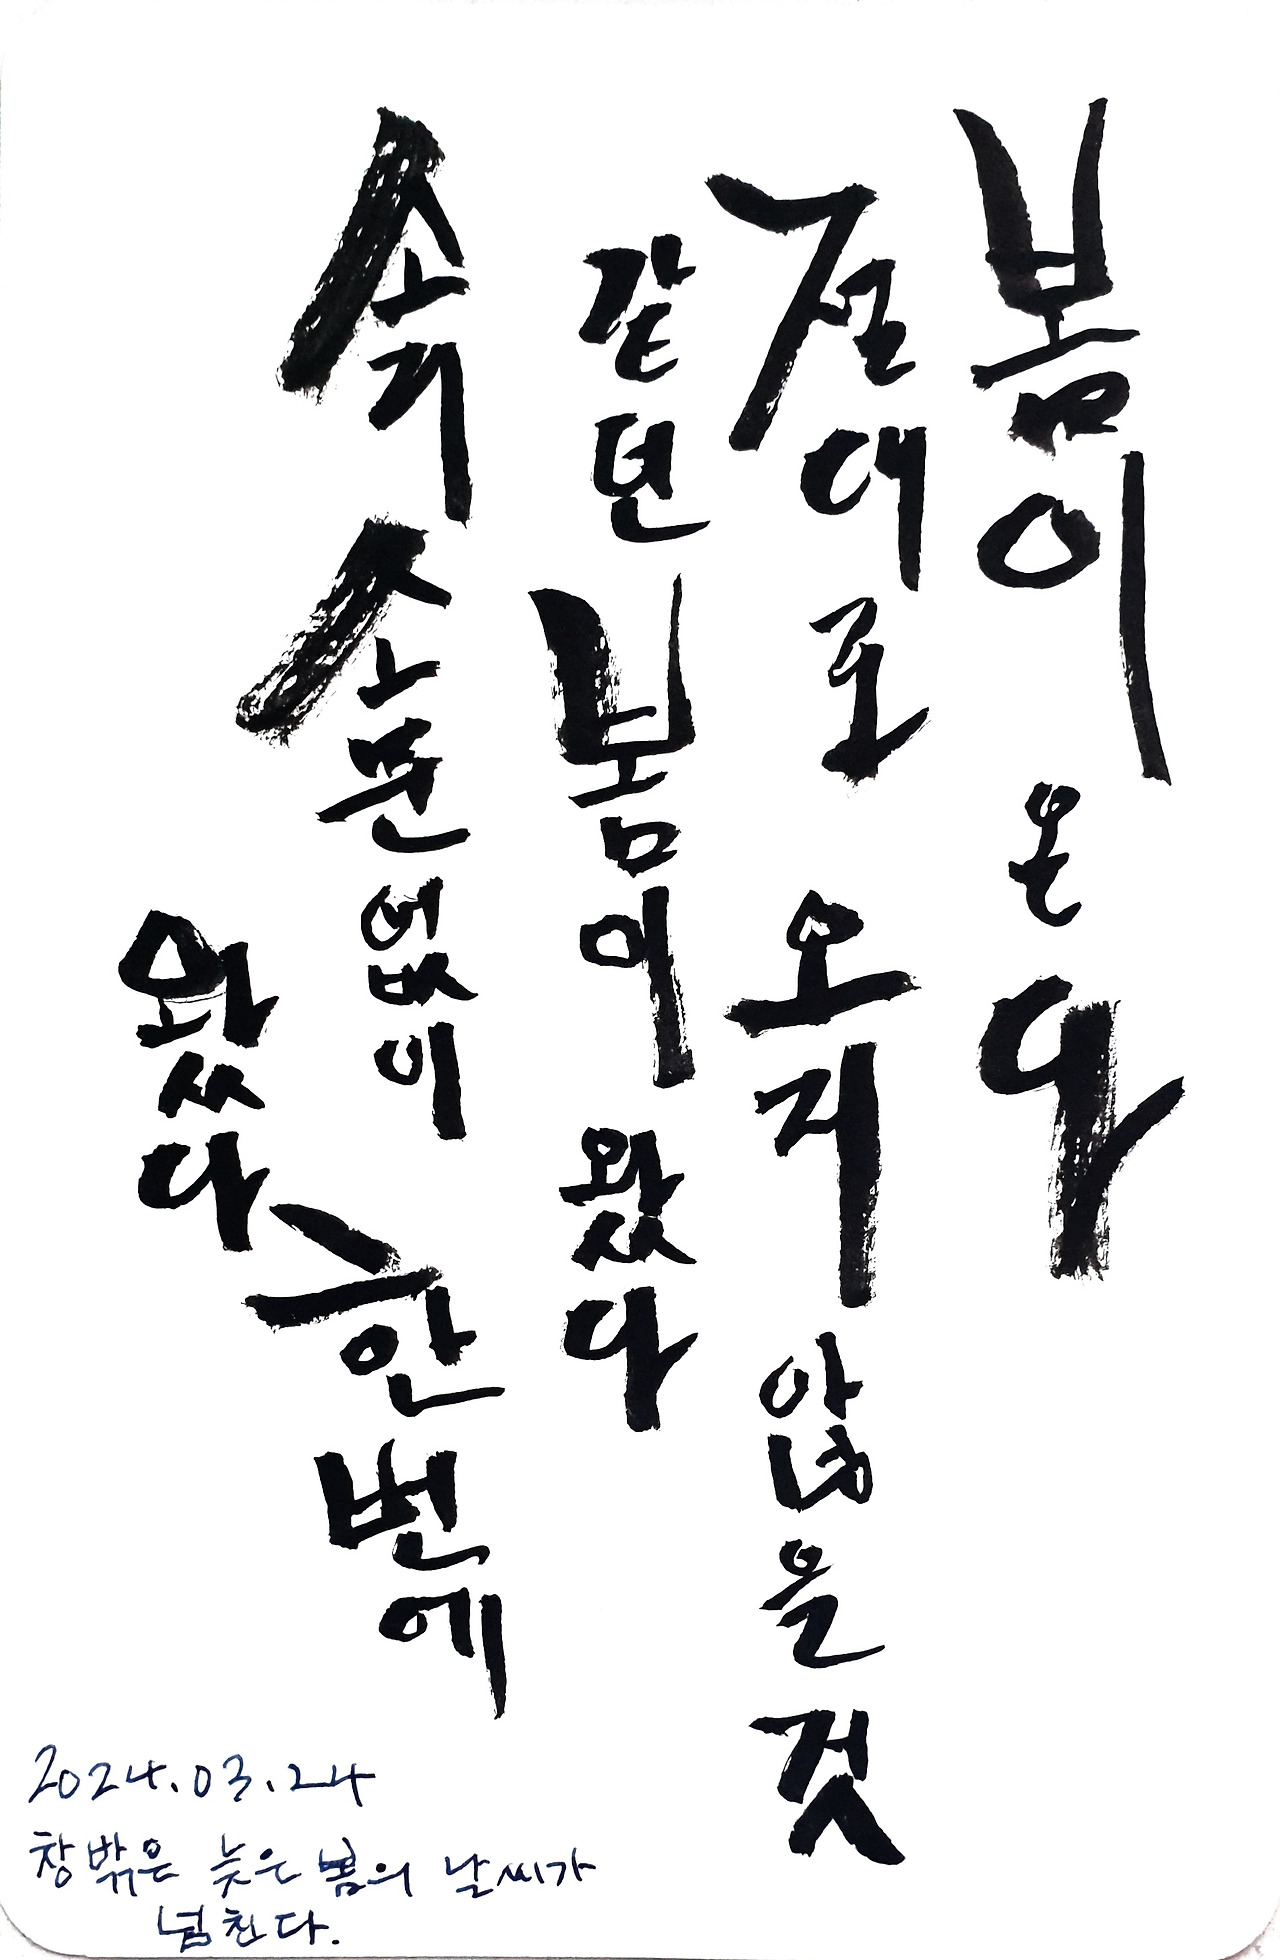 봄이 온다
절대로 오지 않을 것
같던 봄이 왔다
소리 소문 없이 한번에
왔다
2024.03.24
창밖은 늦은 봄의 날씨가
넘친다.